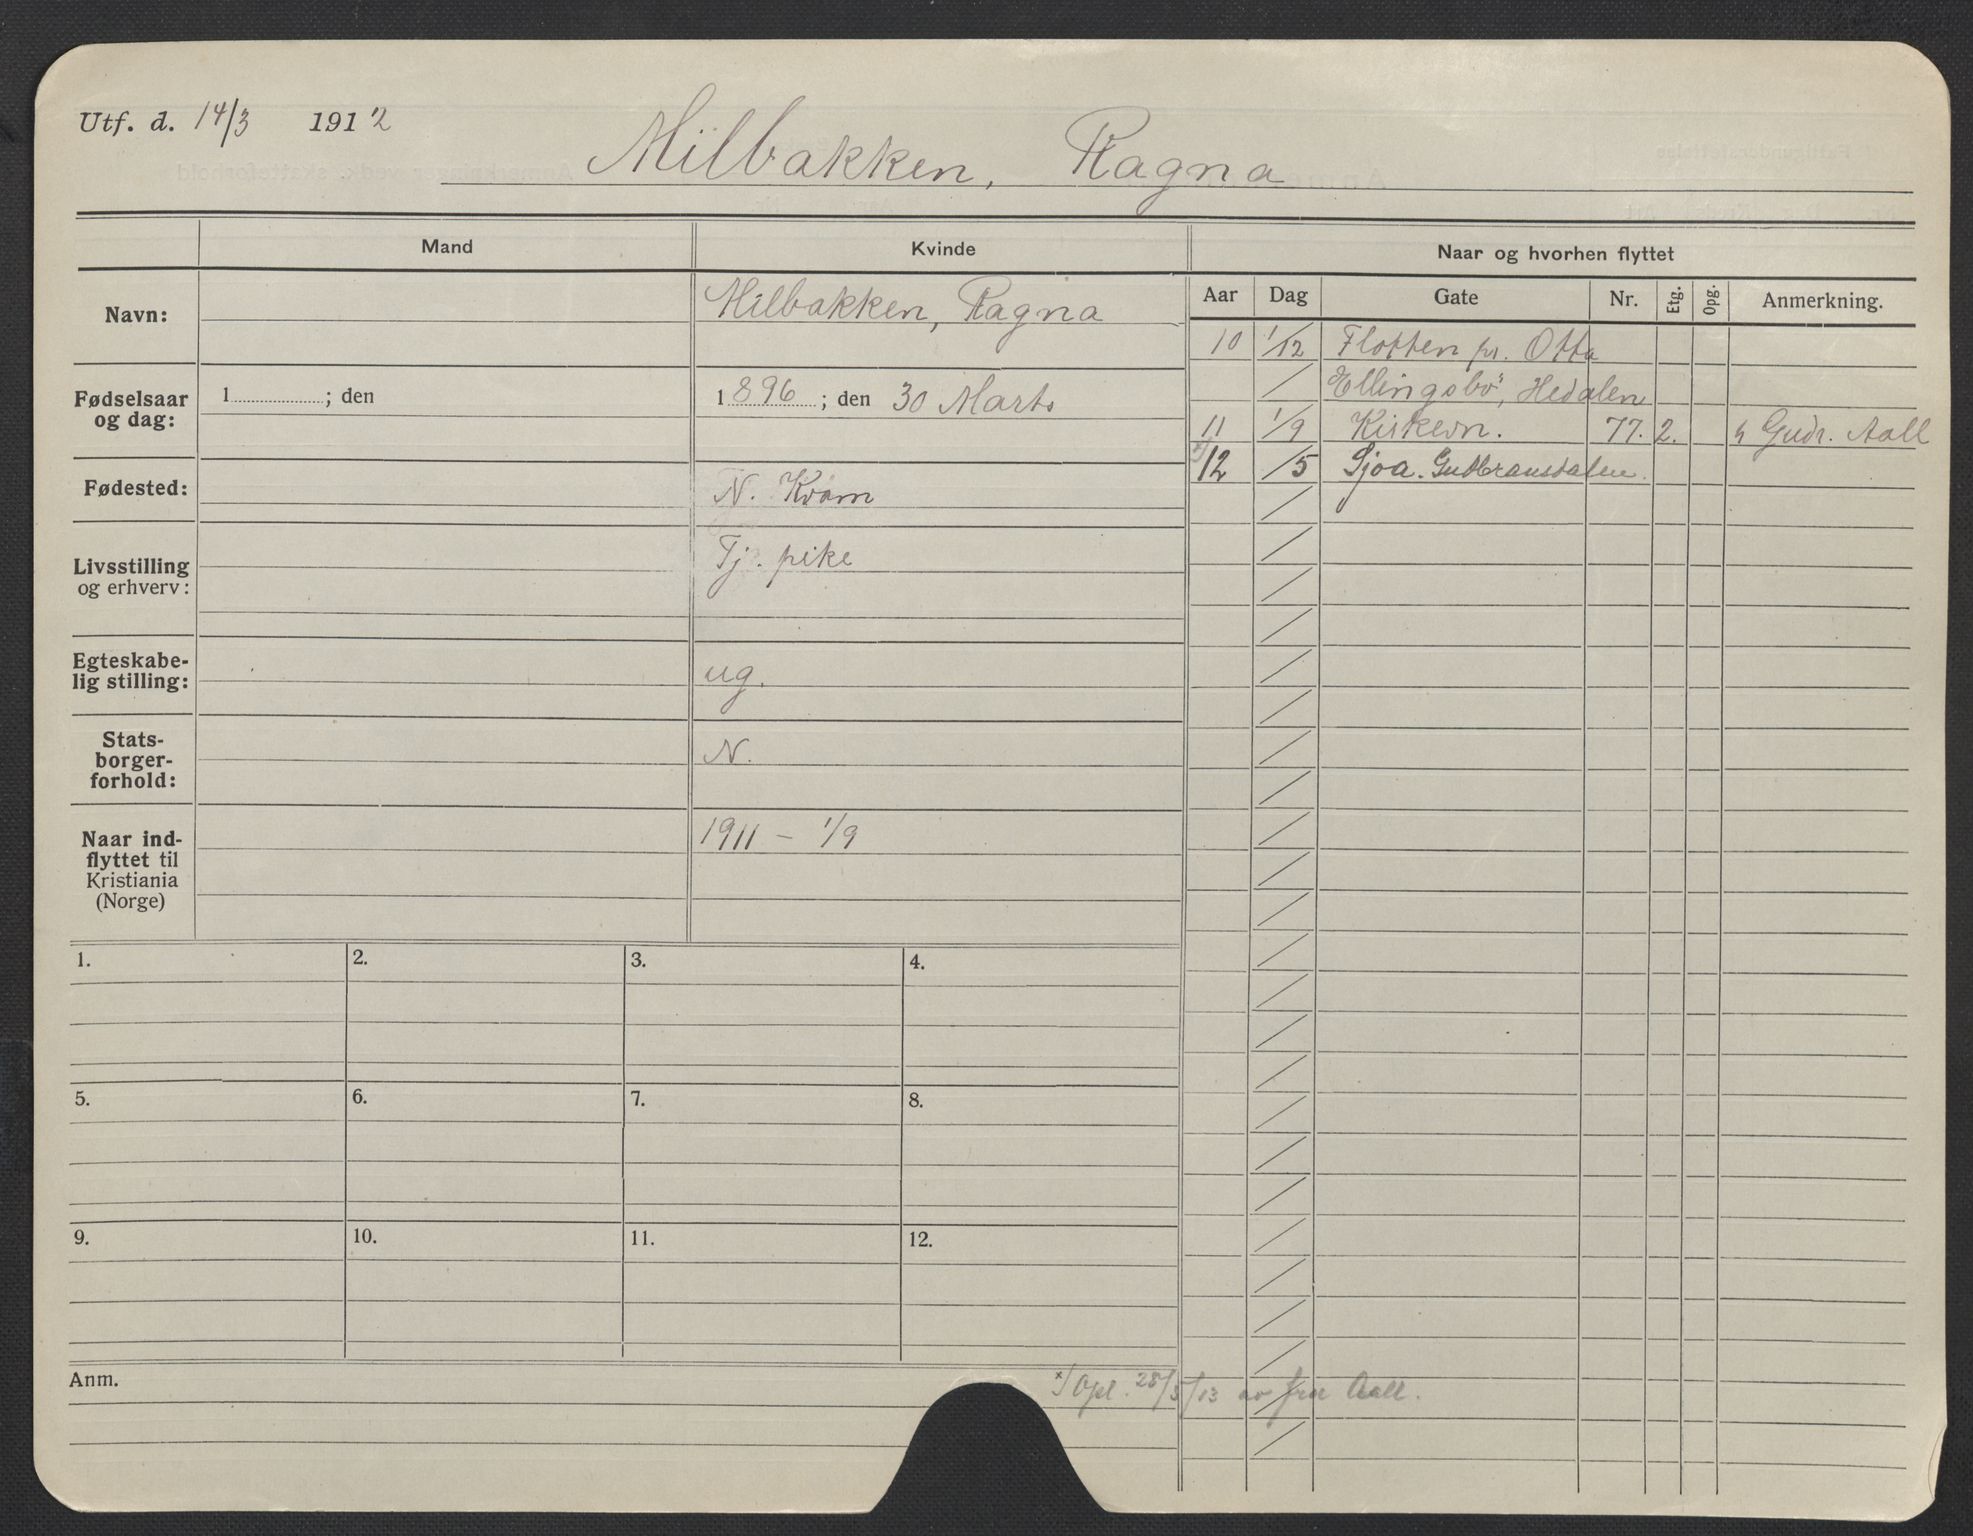 Utf. d. 14/3 1912
Milbakken, Ragna
Mand
Kvinde
Naar og hvorhen flyttet
Navn:
Milbakken, Ragna
Aar Dag Gate Nr. Etg. Opg. Anmerkning.
10 1/12 Flotten pr. Otta
/ Ellingsbø, Hedalen
11 1/9 Kirkevn. 77. 2. h Gudr. Aall
12 /5 Sjoa. Gudbransdalen.
Fødselsaar
og dag:
1 ; den
1896 ; den 30 Marts
Fødested:
N. Kvam
Livsstilling
og erhverv:
Tj. pike
Egteskabe-
lig stilling:
ug.
Stats-
borger-
forhold:
N.
Naar ind-
flyttet til
Kristiania
(Norge)
1911 – 1/9
1. 2. 3. 4.
5. 6. 7. 8.
9. 10. 11. 12.
Anm.
x/ Opl. 28/5/13 av fru Aall.